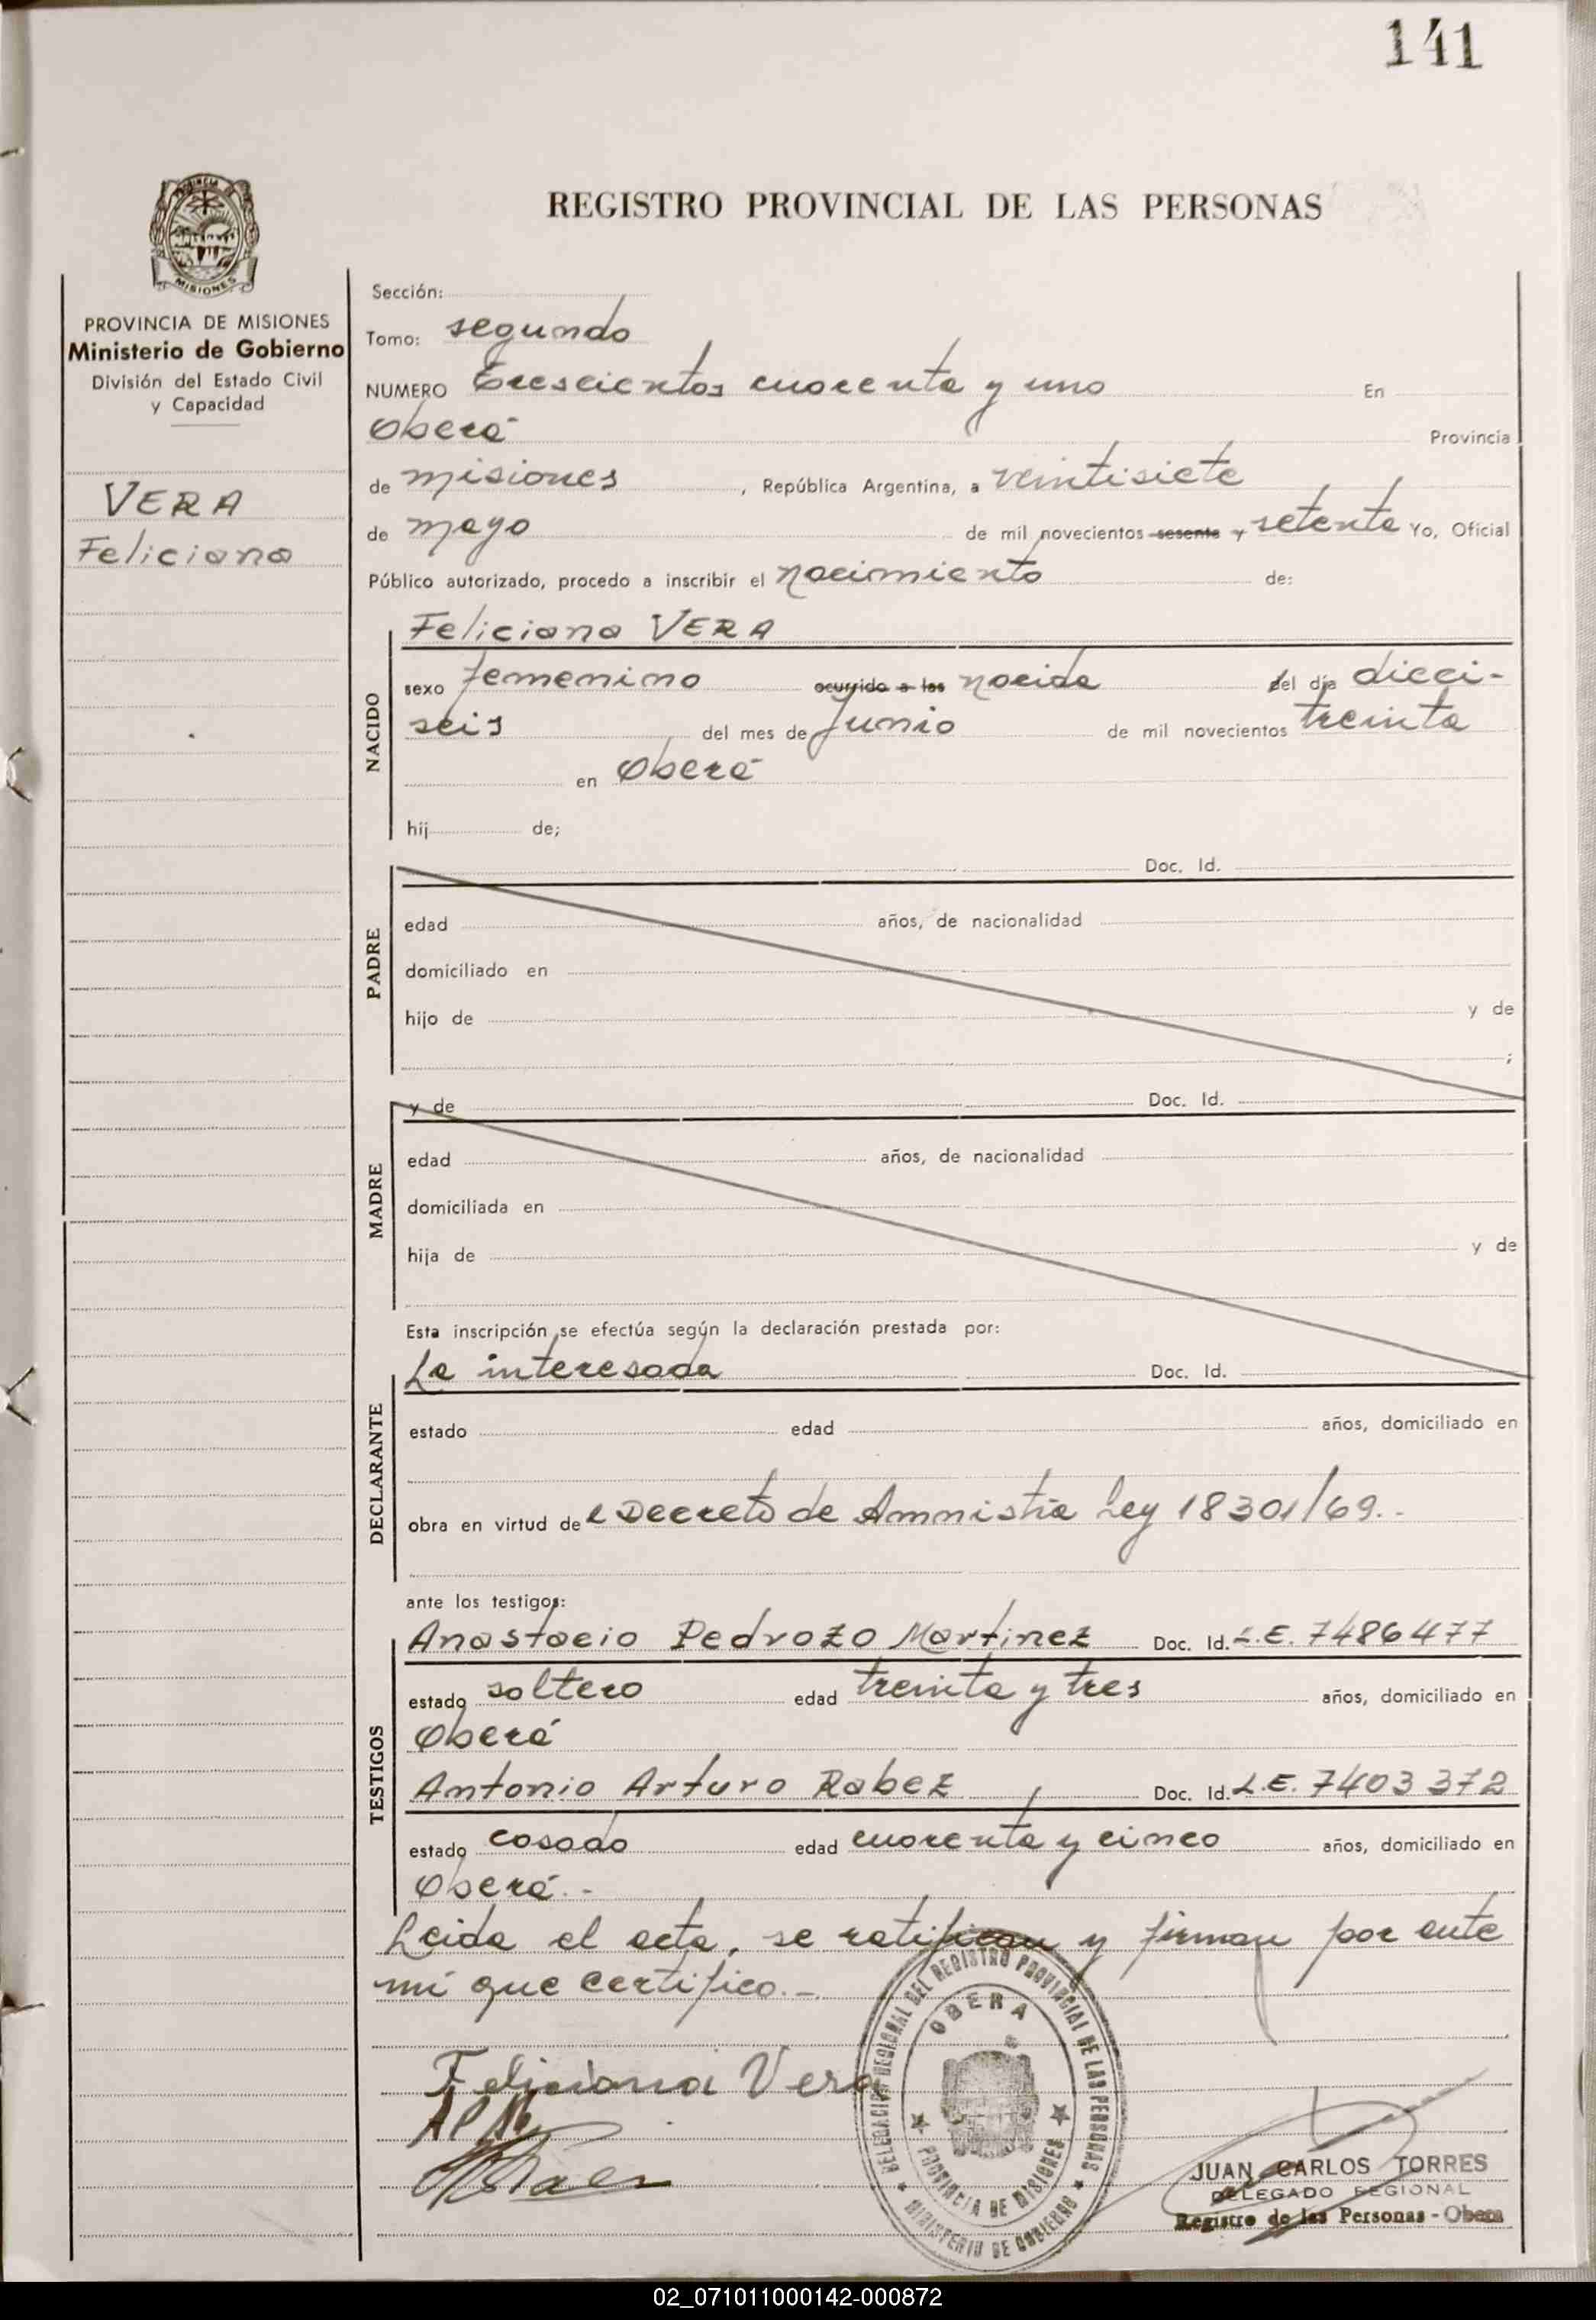 141
REGISTRO PROVINCIAL DE LAS PERSONAS
MISIONES
PROVINCIA DE MISIONES
Ministerio de Gobierno
División del Estado Civil
y Capacidad
VERA
Feliciana
Sección:
Tomo: segundo
NUMERO Trescientos cuarenta y uno En
Oberá Provincia
de misiones , República Argentina, a veintisiete
de mayo de mil novecientos sesenta y setenta Yo, Oficial
Público autorizado, procedo a inscribir el nacimiento de:
NACIDO
Feliciana VERA
sexo femenino ocurrido a las nacida del día dieci-
seis del mes de junio de mil novecientos treinta
en Oberá
hij de;
PADRE
Doc. Id.
edad años, de nacionalidad
domiciliado en
hijo de y de
;
MADRE
y de Doc. Id.
edad años, de nacionalidad
domiciliada en
hija de y de
Esta inscripción se efectúa según la declaración prestada por:
DECLARANTE
La interesada Doc. Id.
estado edad años, domiciliado en
obra en virtud del Decreto de Amnistia Ley 18301/69.-
ante los testigos:
TESTIGOS
Anastacio Pedrozo Martinez Doc. Id. L.E. 7486477
estado soltero edad treinta y tres años, domiciliado en
Oberá
Antonio Arturo Rabez Doc. Id. L.E. 7403372
estado casado edad cuarenta y cinco años, domiciliado en
Oberá.-
Leida el acta, se ratifican y firman por ante
mí que certifico.-
Feliciana Vera
DELEGACION REGIONAL DEL REGISTRO PROVINCIAL DE LAS PERSONAS
OBERA
PROVINCIA DE MISIONES
MINISTERIO DE GOBIERNO
JUAN CARLOS TORRES
DELEGADO REGIONAL
Registro de las Personas - Obera
02_071011000142-000872